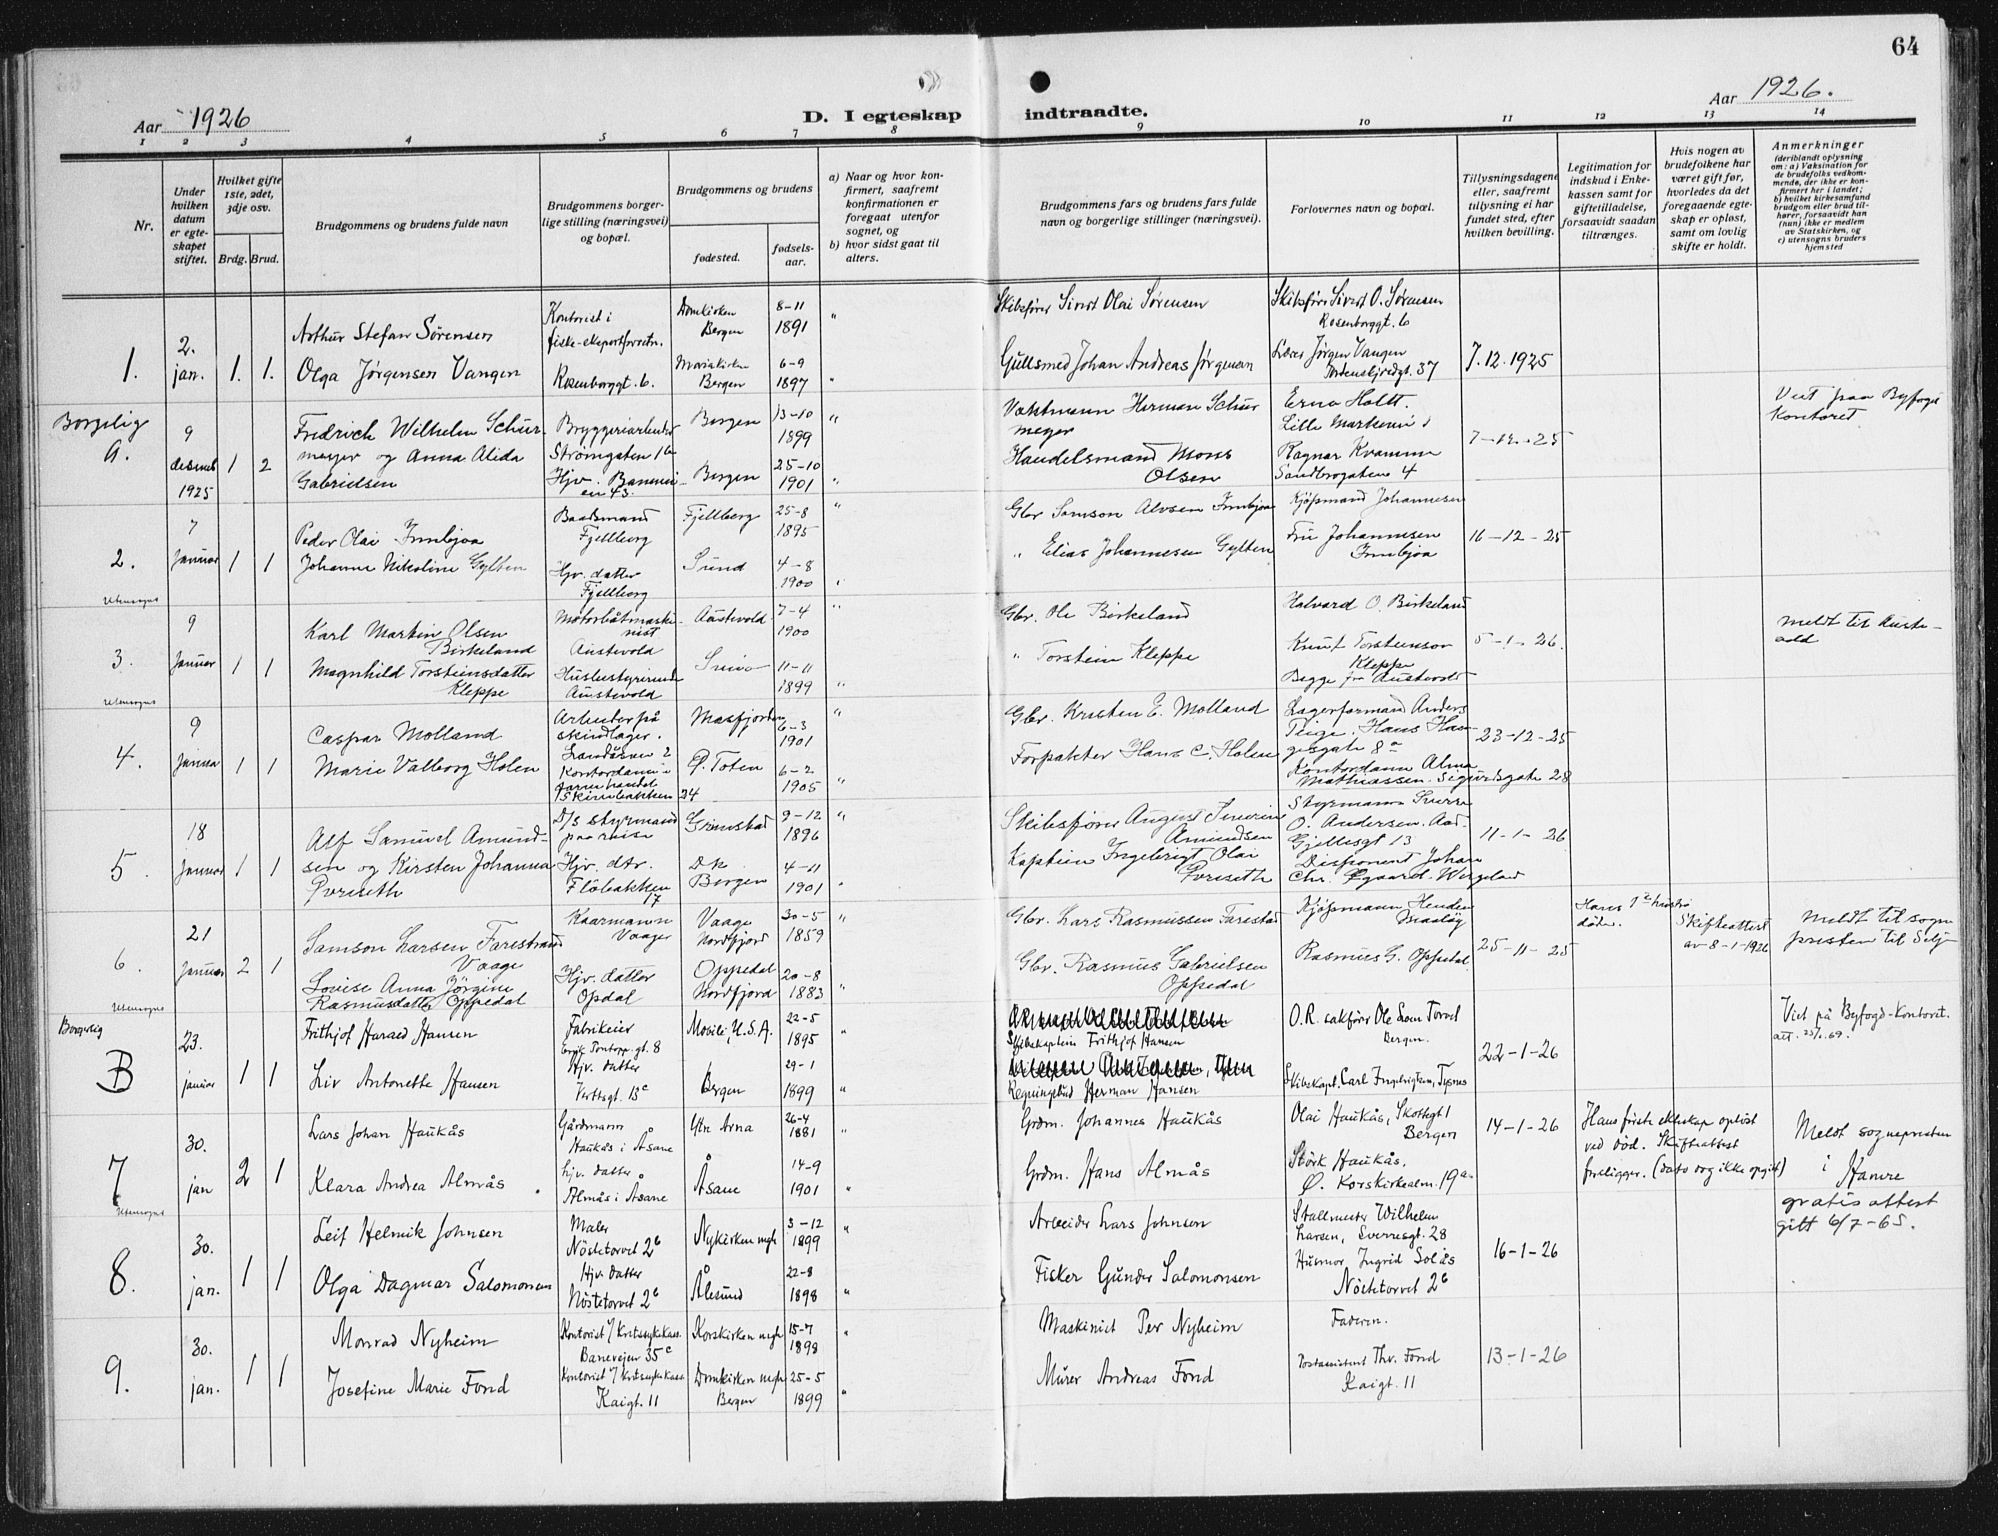 64
Aar 1926
D. I egteskap indtraadte.
Aar 1926.
1 2 3 4 5 6 7 8 9 10 11 12 13 14
Nr.
Under hvilken datum er egteskapet stiftet.
Hvilket gifte 1ste, 2det, 3dje osv.
Brdg. Brud.
Brudgommens og brudens fulde navn
Brudgommens borgerlige stilling (næringsvei) og bopæl.
Brudgommens og brudens
fødested.
fødselsaar.
a) Naar og hvor konfirmert, saafremt konfirmationen er foregaat utenfor sognet, og
b) hvor sidst gaat til alters.
Brudgommens fars og brudens fars fulde navn og borgerlige stillinger (næringsvei).
Forlovernes navn og bopæl.
Tillysningsdagene eller, saafremt tillysning ei har fundet sted, efter hvilken bevilling.
Legitimation for indskud i Enkekassen samt for giftetilladelse, forsaavidt saadan tiltrænges.
Hvis nogen av brudefolkene har været gift før, hvorledes da det foregaaende egteskap er opløst, samt om lovlig skifte er holdt.
Anmerkninger
(deriblandt oplysning om: a) Vaksination for de brudefolks vedkommende, der ikke er konfirmert her i landet; b) hvilket kirkesamfund brudgom eller brud tilhører, forsaavidt han (hun) ikke er medlem av Statskirken, og c) utensogns bruders hjemsted
1. 2. jan. 1. 1.
Arthur Stefan Sørensen
Olga Jørgensen Vangen
Kontorist i
fiske-eksportforretn.
Rosenborggt. 6.
Domkirken
Bergen
8-11
1891
Mariakirken
Bergen
6-9
1897
Skibsfører Sivert Olai Sørensen
Gullsmed Johan Andreas Jørgensen
Skibsfører Sivert O. Sørensen
Rosenborggt. 6
Lærer Jørgen Vangen
37
7.12.1925
Borgelig
A. 9 desember 1925 1 2
Fredrich Wilhelm Schur-
meyer og Anna Alida
Gabrielsen
Bryggeriarbeider
Strømgaten 16
Hjv. Banevei-
en 43.
Bergen
13-10
1899
Bergen
25-10
1901
Vaktmann Herman Schur
meyer
Handelsmand Mons
Olsen
Erna Holtt.
Lille Markevei
Ragnar Kvamme
Sandbrogaten 4
7-12-25
Viet fraa Byfogd
Kontoret.
2. 7 Januar 1 1
utensogns
Peder Olai Innbjoa
Johanne Nikoline Gylten
Baadsmand
Fjellberg
Hjv. datter
Fjellberg
Fjellberg
25-8
1895
Sund
4-8
1900
Gbr Samson Alvsen Innbjoa
" Elias Johannesen Gylten
Kjøpmand Johannesen
Fru Johannesen
Innbjoa
16-12-25
3. 9 Januar 1 1
utensogns
Karl Martin Olsen
Birkeland
Magnhild Torsteinsdatter
Kleppe
Motorbåtmaski-
nist
Austevold
Husbestyrerinde
Austevold
Austevold
7-4
1900
11-11
1899
Gbr. Ole Birkeland
" Torstein Kleppe
Halvard O. Birkeland
Knut Torsteinson
Kleppe
Begge fra Austevold
5-1-26.
Meldt til Auste-
vold
4. 9 Januar 1 1
Caspar Molland
Marie Valborg Holen
Arbeider på
skindlager.
Landåsvei 2
Kontordame i
garnhandel
Skivebakken 24
Masfjorden
6-3
1901
Ø. Toten
6-2
1905
Gbr. Kristen E. Molland
Forpakter Hans C. Holen
Lagerformand Anders
Teige. Hans Hau-
gesgate 8a
Kontordame Alma
Mathiassen. Sigurdsgate 28
23-12-25
5. 18 Januar 1 1
Alf Samuel Amund-
sen og Kirsten Johanna
D/s styrmand
paa reise
Hjv. dtr.
Fløibakken
17
Grimstad
9-12
1896
Dk
Bergen
4-11
1901
Skibsfører August Severin
Amundsen
Kaptein Ingebrigt Olai
Styrmann Sverre
O. Andersen. Aad-
Gjellesgt 13
Disponent Johan
Chr. Øgaard-Wergeland
11-1-26
6. 21 Januar 2 1
utensogns
Samson Larsen Farestrand
Vaage
Louise Anna Jörgine
Rasmusdatter Oppedal
Kaarmann
Vaage
Hjv. datter
Opdal
Vaage
Nordfjord
30-5
1859
Oppedal
Nordfjord
20-8
1883
Gbr. Lars Rasmussen Farestad
Gbr. Rasmus Gabrielsen
Oppedal
Kjøpmann Henden
Maaløy
Rasmus G. Oppedal
25-11-25
Hans 1ste hustru
døde.
Skifteattest
av 8-1-1926
Meldt til sogne
presten til Selje
Borgerlig
B 23. januar 1 1
Frithjof Harald Hansen
Liv Antonette Hansen
Fabrikeier
Erik Pontopp. gt. 8
Hjv. datter
Vertftsgt. 13c
Mobile, U.S.A.
22-5
1895
Bergen
29-1
1899
Skibskaptein Frithjof Hansen
Regningsbud Herman Hansen
O.R. sakfører Ole Lom Torvel
Bergen.
Skibskapt. Carl Ingebrigtsen, Tysnes
22-1-26
Viet på Byfogd-Kontoret.
7 30. jan 2 1
utensogns
Lars Johan Haukås
Klara Andrea Almås
Gårdmann
Haukås i Åsane
hjv. datter
Almås i Åsane
Ytre Arna
26-4
1881
Åsane
14-9
1901
Grdm. Johannes Haukås
Grdm. Hans Almås
Olai Haukås, Skottegt 1
Bergen
Störk Haukås,
Ø. Korskirkealm. 19a
14-1-26
Hans første ekteskap opløst
ved død. Skifteattest
foreligger. (dato dog ikke opgit)
Meldt sognepresten
i Hamre
8. 30. jan. 1 1
Leif Helmik Johnsen
Olga Dagmar Salomonsen
Maler
Nöstetorvet 2b
Hjv. datter
Nöstetorvet 2b
Nykirken mgh
3-12
1899
Ålesund
22-8
1898
Arbeider Lars Johnsen
Fisker Gunder Salomonsen
Stallmester Wilhelm
Larsen, Sverresgt. 28
Husmor Ingrid Solås
Nöstetorvet 2b
16-1-26
gratis attest
gitt 6/7-65.
9. 30. jan. 1 1
Monrad Nyheim
Josefine Marie Fond
Kontorist v/ kretssykekass.
Baneveien 35c
Kontorist v/ kretssykekass
Kaigt. 11
Korskirken mgh
15-7
1898
Domkirken mgh
Bergen
25-5
1899
Maskinist Per Nyheim
Murer Andreas Fond
Faderen.
Postassistent Thv. Fond
Kaigt. 11
13-1-26